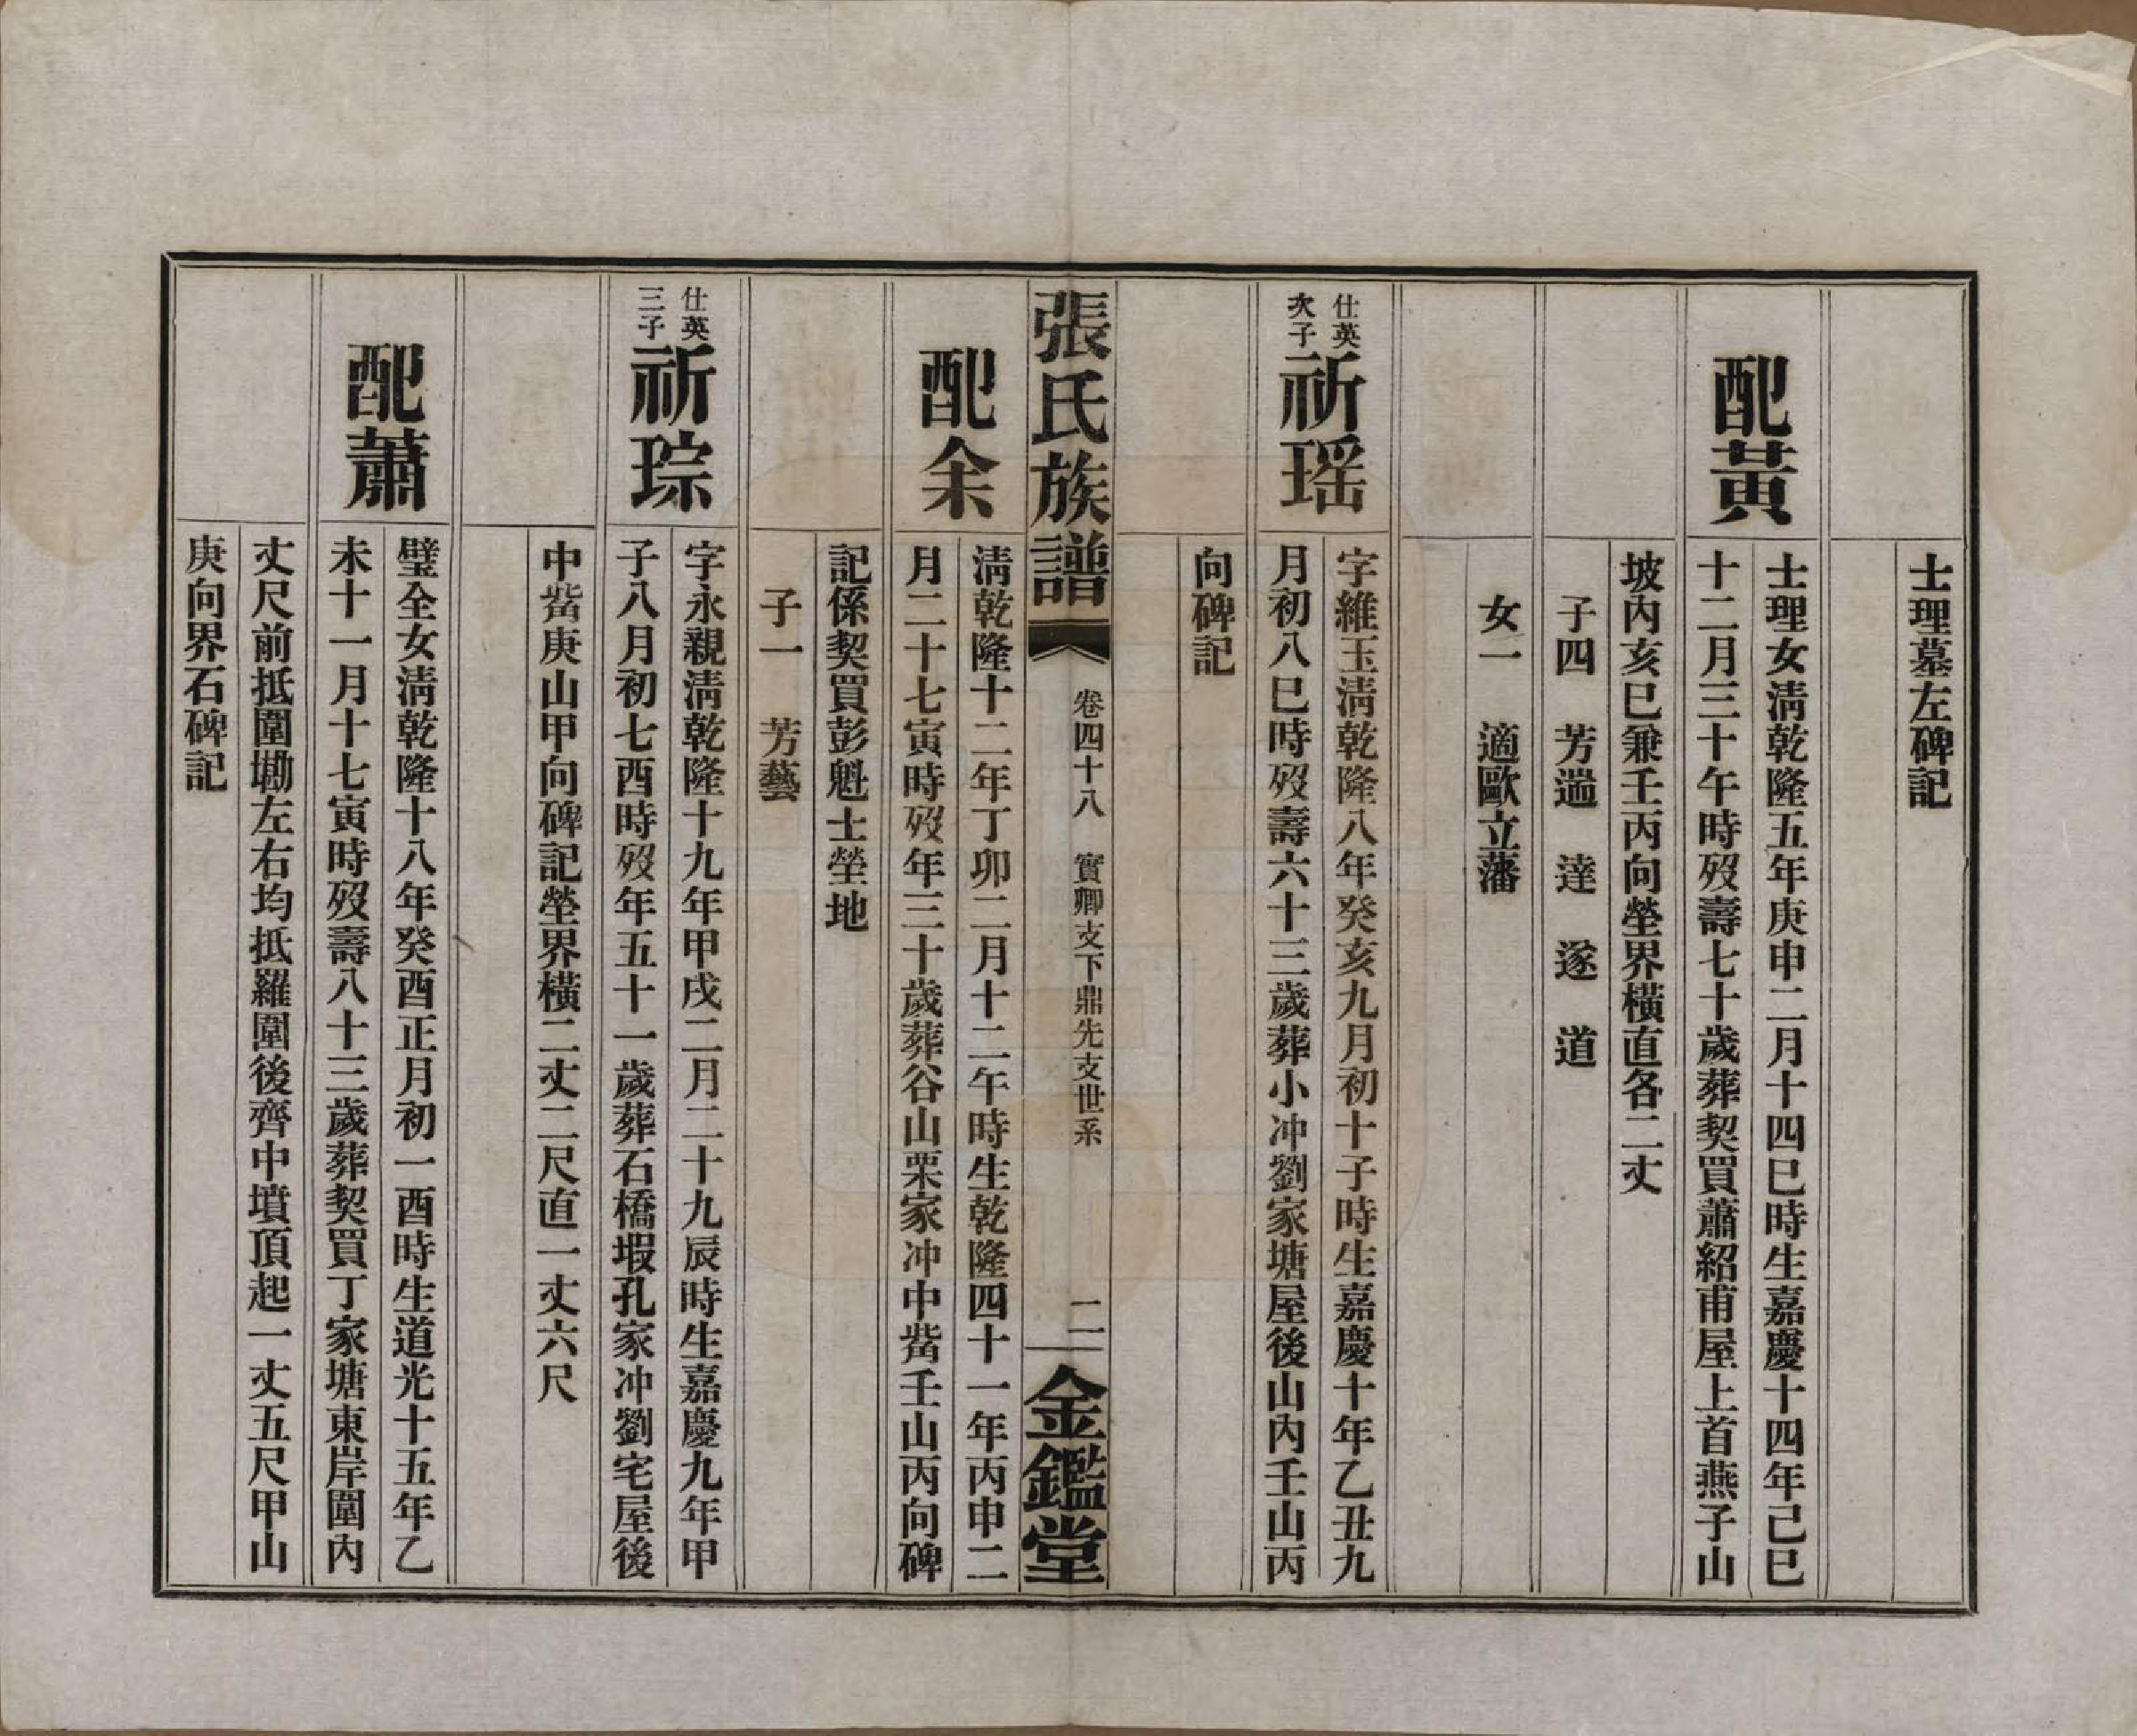 士理墓左碑記
配黃
士理女淸乾隆五年庚申二月十四巳時生嘉慶十四年己巳
十二月三十午時歿壽七十歲葬契買蕭紹甫屋上首燕子山
坡內亥巳兼壬丙向塋界橫直各二丈
子四　芳遄　逹　遂　道
女一　適歐立藩
仕英
次子
祈瑶
字維玉淸乾隆八年癸亥九月初十子時生嘉慶十年乙丑九
月初八巳時歿壽六十三歲葬小冲劉家塘屋後山內壬山丙
向碑記
張氏族譜
卷四十八　實卿支下鼎先支世系
二
金鑑堂
配余
淸乾隆十二年丁卯二月十二午時生乾隆四十一年丙申二
月二十七寅時歿年三十歲葬谷山栗家冲中嵴壬山丙向碑
記係契買彭魁士塋地
子一　芳藝
仕英
三子
祈琮
字永親淸乾隆十九年甲戌二月二十九辰時生嘉慶九年甲
子八月初七酉時歿年五十一歲葬石橋塅孔家冲劉宅屋後
中嵴庚山甲向碑記塋界橫二丈二尺直一丈六尺
配蕭
璧全女淸乾隆十八年癸酉正月初一酉時生道光十五年乙
未十一月十七寅時歿壽八十三歲葬契買丁家塘東岸圍內
丈尺前抵圍墈左右均抵羅圍後齊中墳頂起一丈五尺甲山
庚向界石碑記